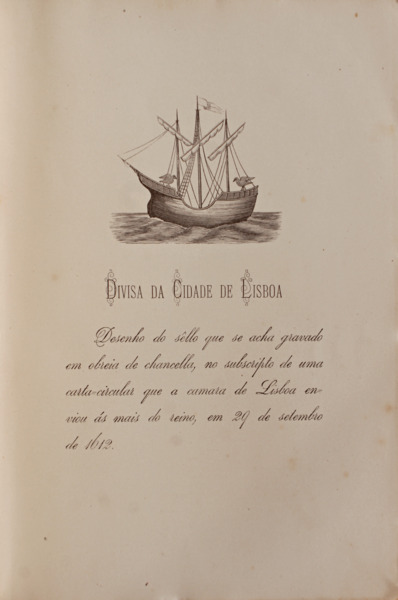 DIVISA DA CIDADE DE LISBOA
Desenho do sêllo que se acha gravado
em obreia de chancella, no subscripto de uma
carta-circular que a camara de Lisboa en-
viou ás mais do reino, em 29 de setembro
de 1612.